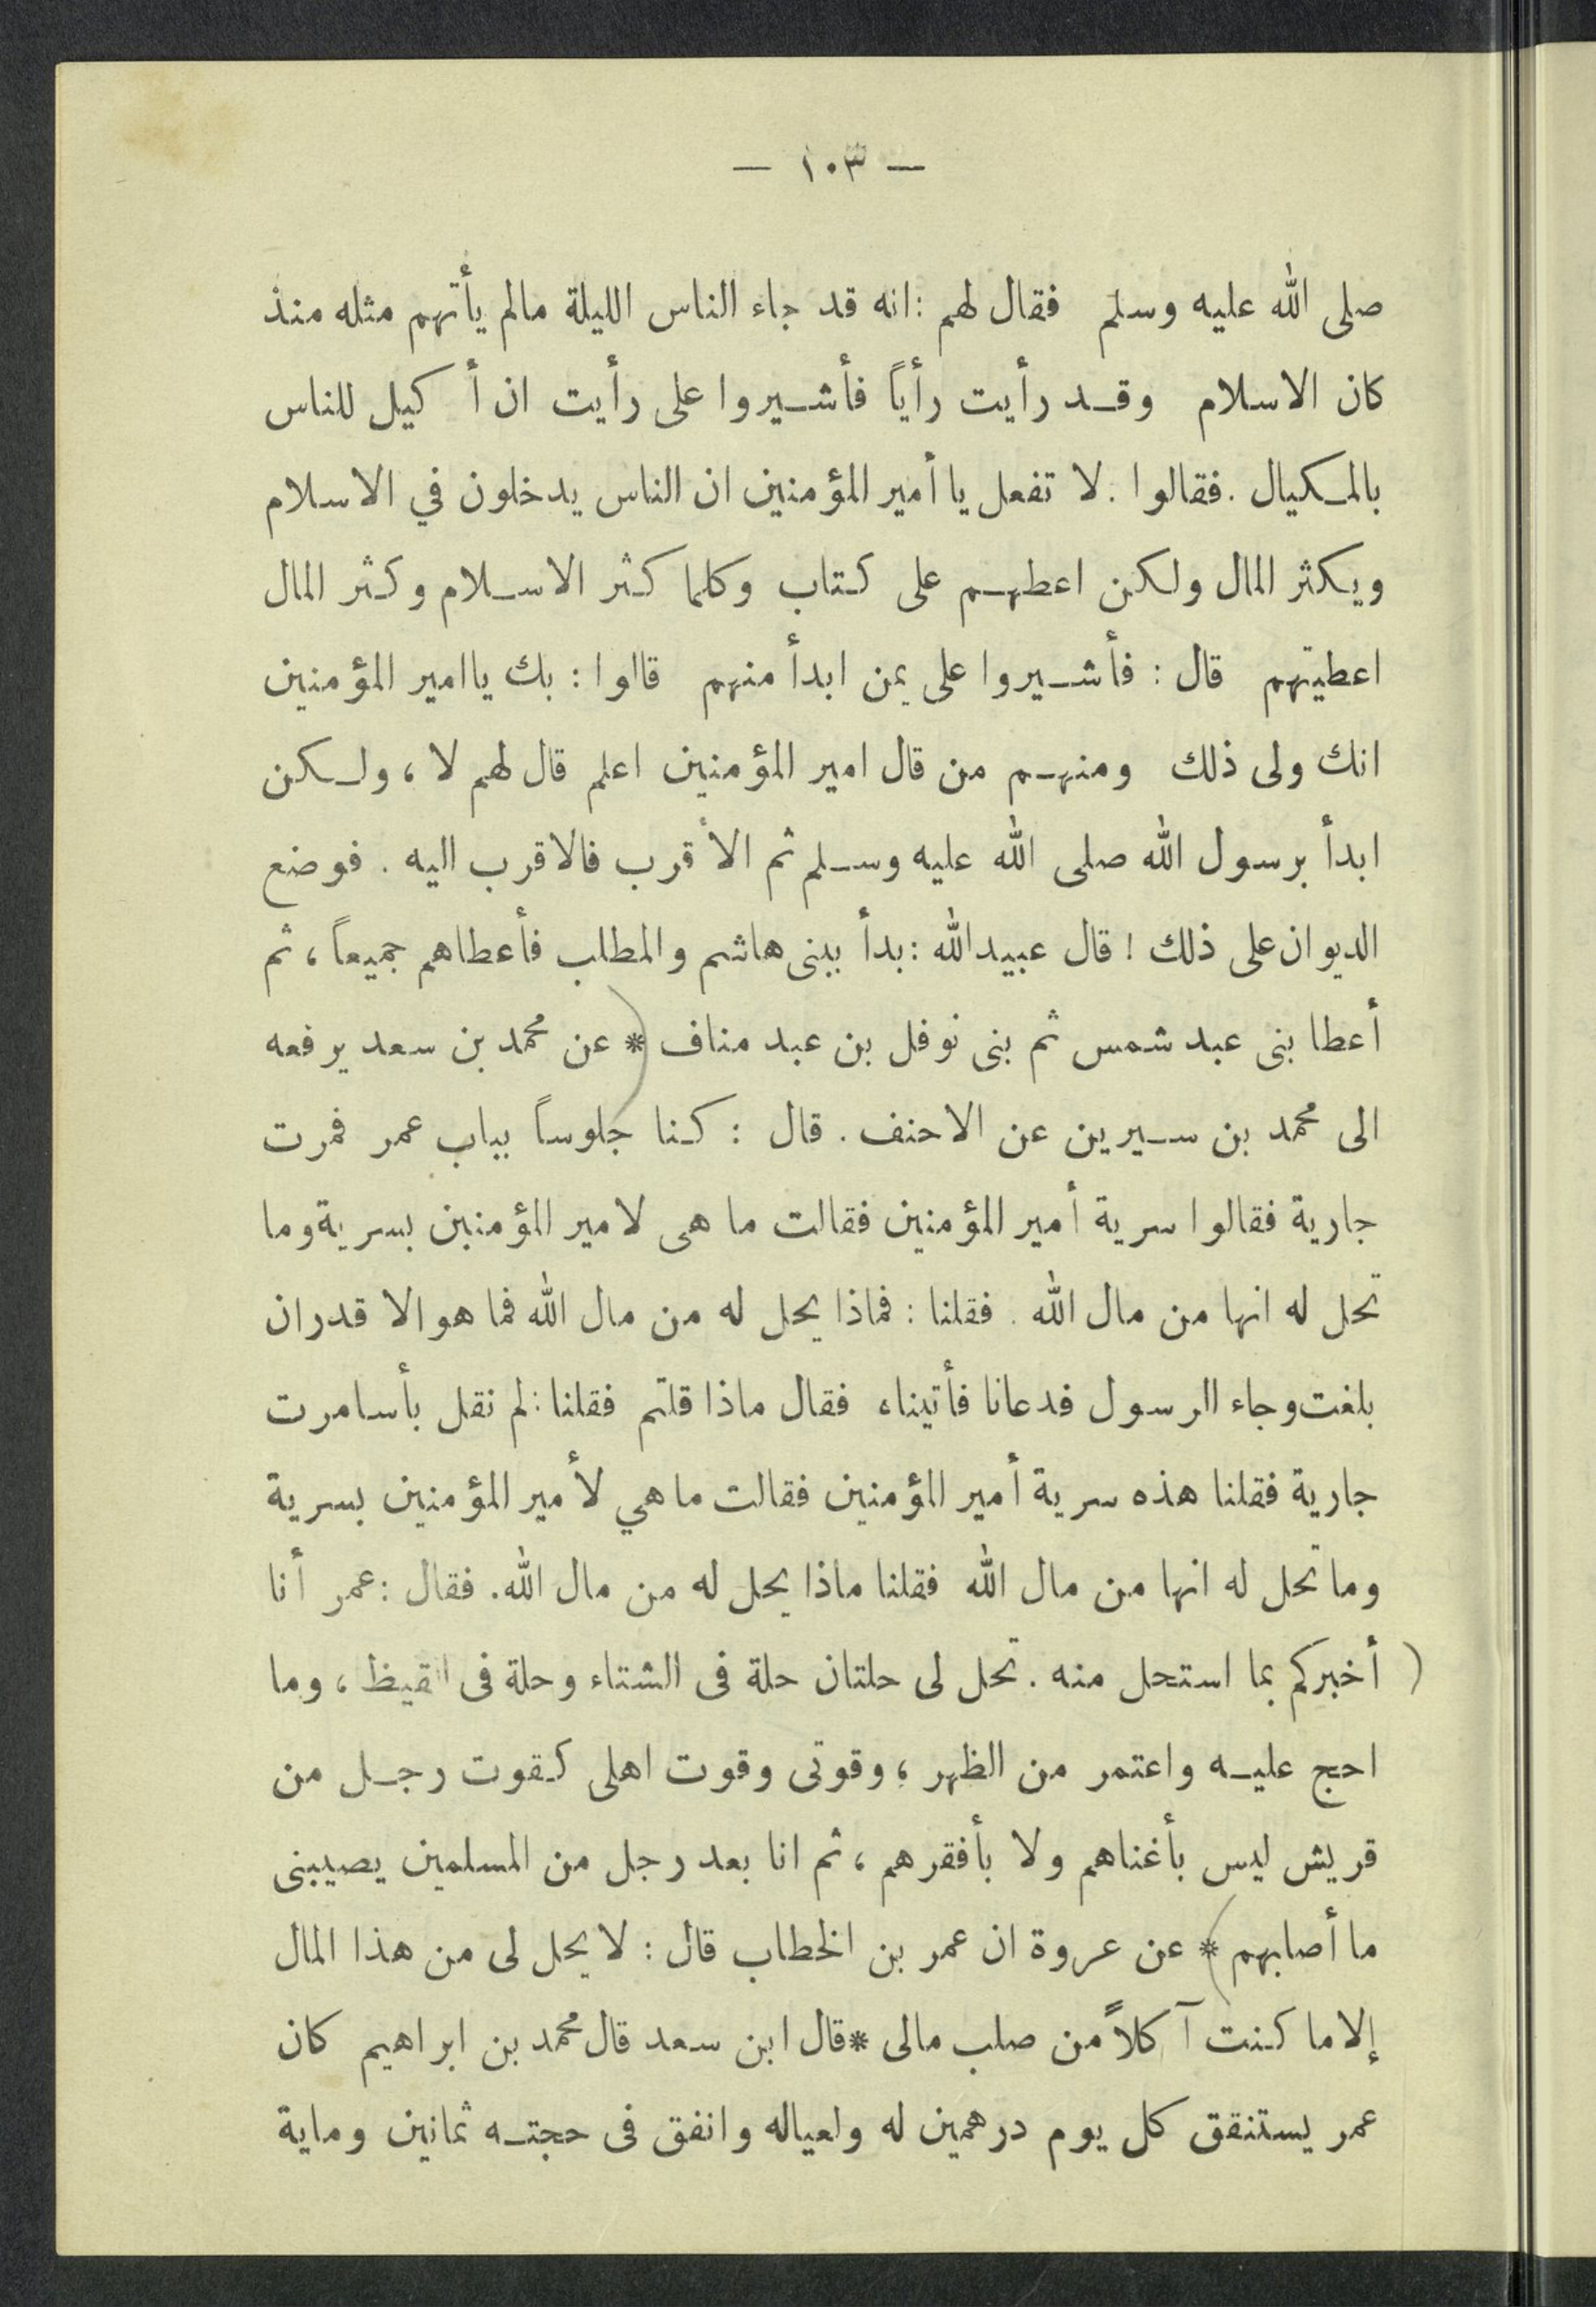 — ١٠٣ —
صلى الله عليه وسلم فقال لهم : انه قد جاء الناس الليلة مالم يأتهم مثله منذ
كان الاسلام وقد رأيت رأياً فأشيروا على رأيت ان أكيل للناس
بالمكيال . فقالوا . لا تفعل يا أمير المؤمنين ان الناس يدخلون في الاسلام
ويكثر المال ولكن اعطهم على كتاب وكلما كثر الاسلام وكثر المال
اعطيتهم قال : فأشيروا على بمن ابدأ منهم قالوا : بك ياامير المؤمنين
انك ولى ذلك ومنهم من قال امير المؤمنين اعلم قال لهم لا ، ولكن
ابدأ برسول الله صلى الله عليه وسلم ثم الأقرب فالاقرب اليه . فوضع
الديوان على ذلك ! قال عبيدالله : بدأ ببنى هاشم والمطلب فأعطاهم جميعاً ، ثم
أعطا بنى عبد شمس ثم بنى نوفل بن عبد مناف * عن محمد بن سعد يرفعه
الى محمد بن سيرين عن الاحنف . قال : كنا جلوساً بباب عمر فمرت
جارية فقالوا سرية أمير المؤمنين فقالت ما هى لامير المؤمنين بسرية وما
تحل له انها من مال الله . فقلنا : فماذا يحل له من مال الله فما هو الا قدر ان
بلغت وجاء الرسول فدعانا فأتيناه فقال ماذا قلتم فقلنا : لم نقل بأسا مرت
جارية فقلنا هذه سرية أمير المؤمنين فقالت ما هي لأمير المؤمنين بسرية
وما تحل له انها من مال الله فقلنا ماذا يحل له من مال الله . فقال : عمر أنا
( أخبركم بما استحل منه . تحل لى حلتان حلة فى الشتاء وحلة فى القيظ ، وما
احج عليه واعتمر من الظهر ، وقوتى وقوت اهلى كقوت رجل من
قريش ليس بأغناهم ولا بأفقرهم ، ثم انا بعد رجل من المسلمين يصيبنى
ما أصابهم ) * عن عروة ان عمر بن الخطاب قال : لا يحل لى من هذا المال
إلا ما كنت آكلاً من صلب مالى * قال ابن سعد قال محمد بن ابراهيم كان
عمر يستنقق كل يوم درهمين له ولعياله وانفق فى حجته ثمانين وماية